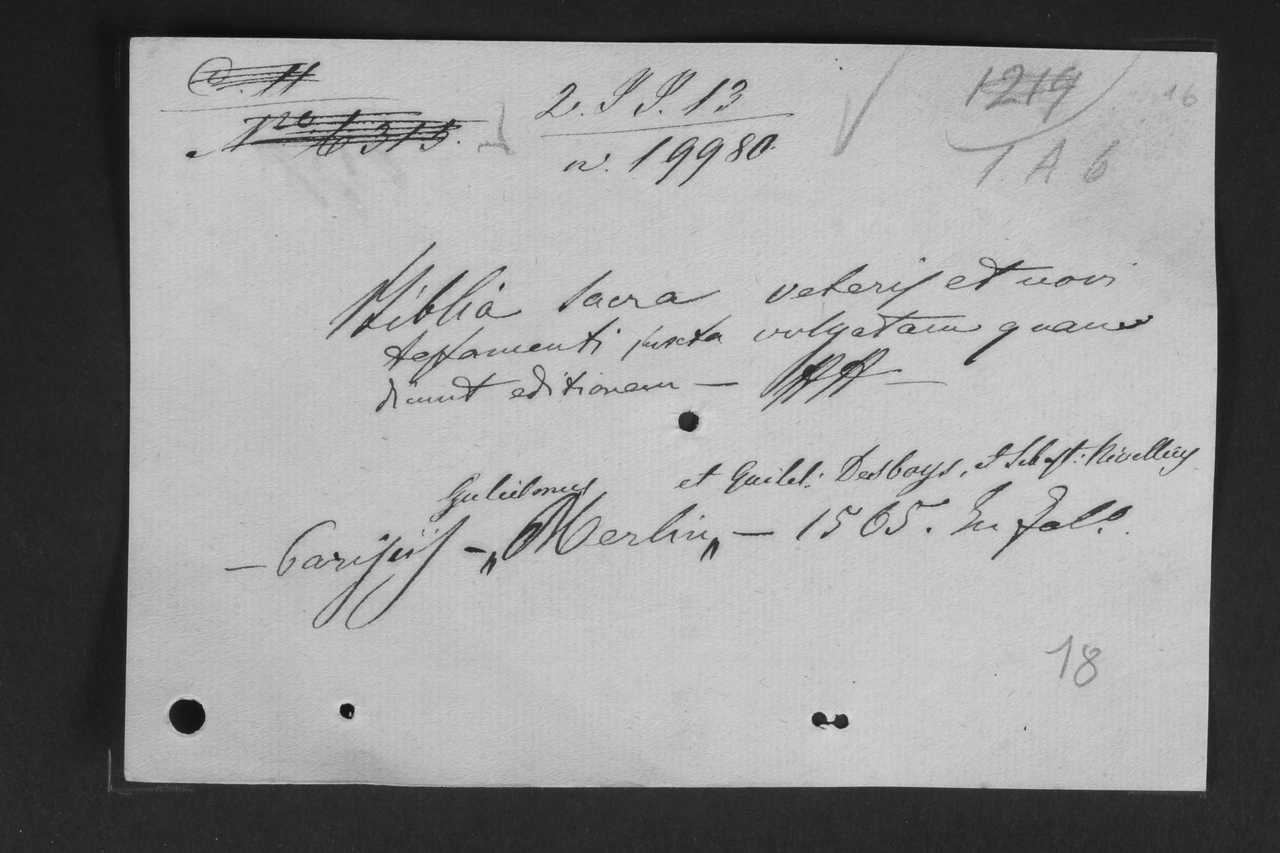 C. H
Nro. 6315.
2. I I. 13
n. 19980.
1219
16
1. A 6
Biblia sacra veteris et novi
testamenti juxta vulgatam quam
dicunt editionem —
Gulielmus et Guilel: Desboys, et Sebast: Nivellius
— Parisijs — „Merlin„ — 1565. In fol.º
18